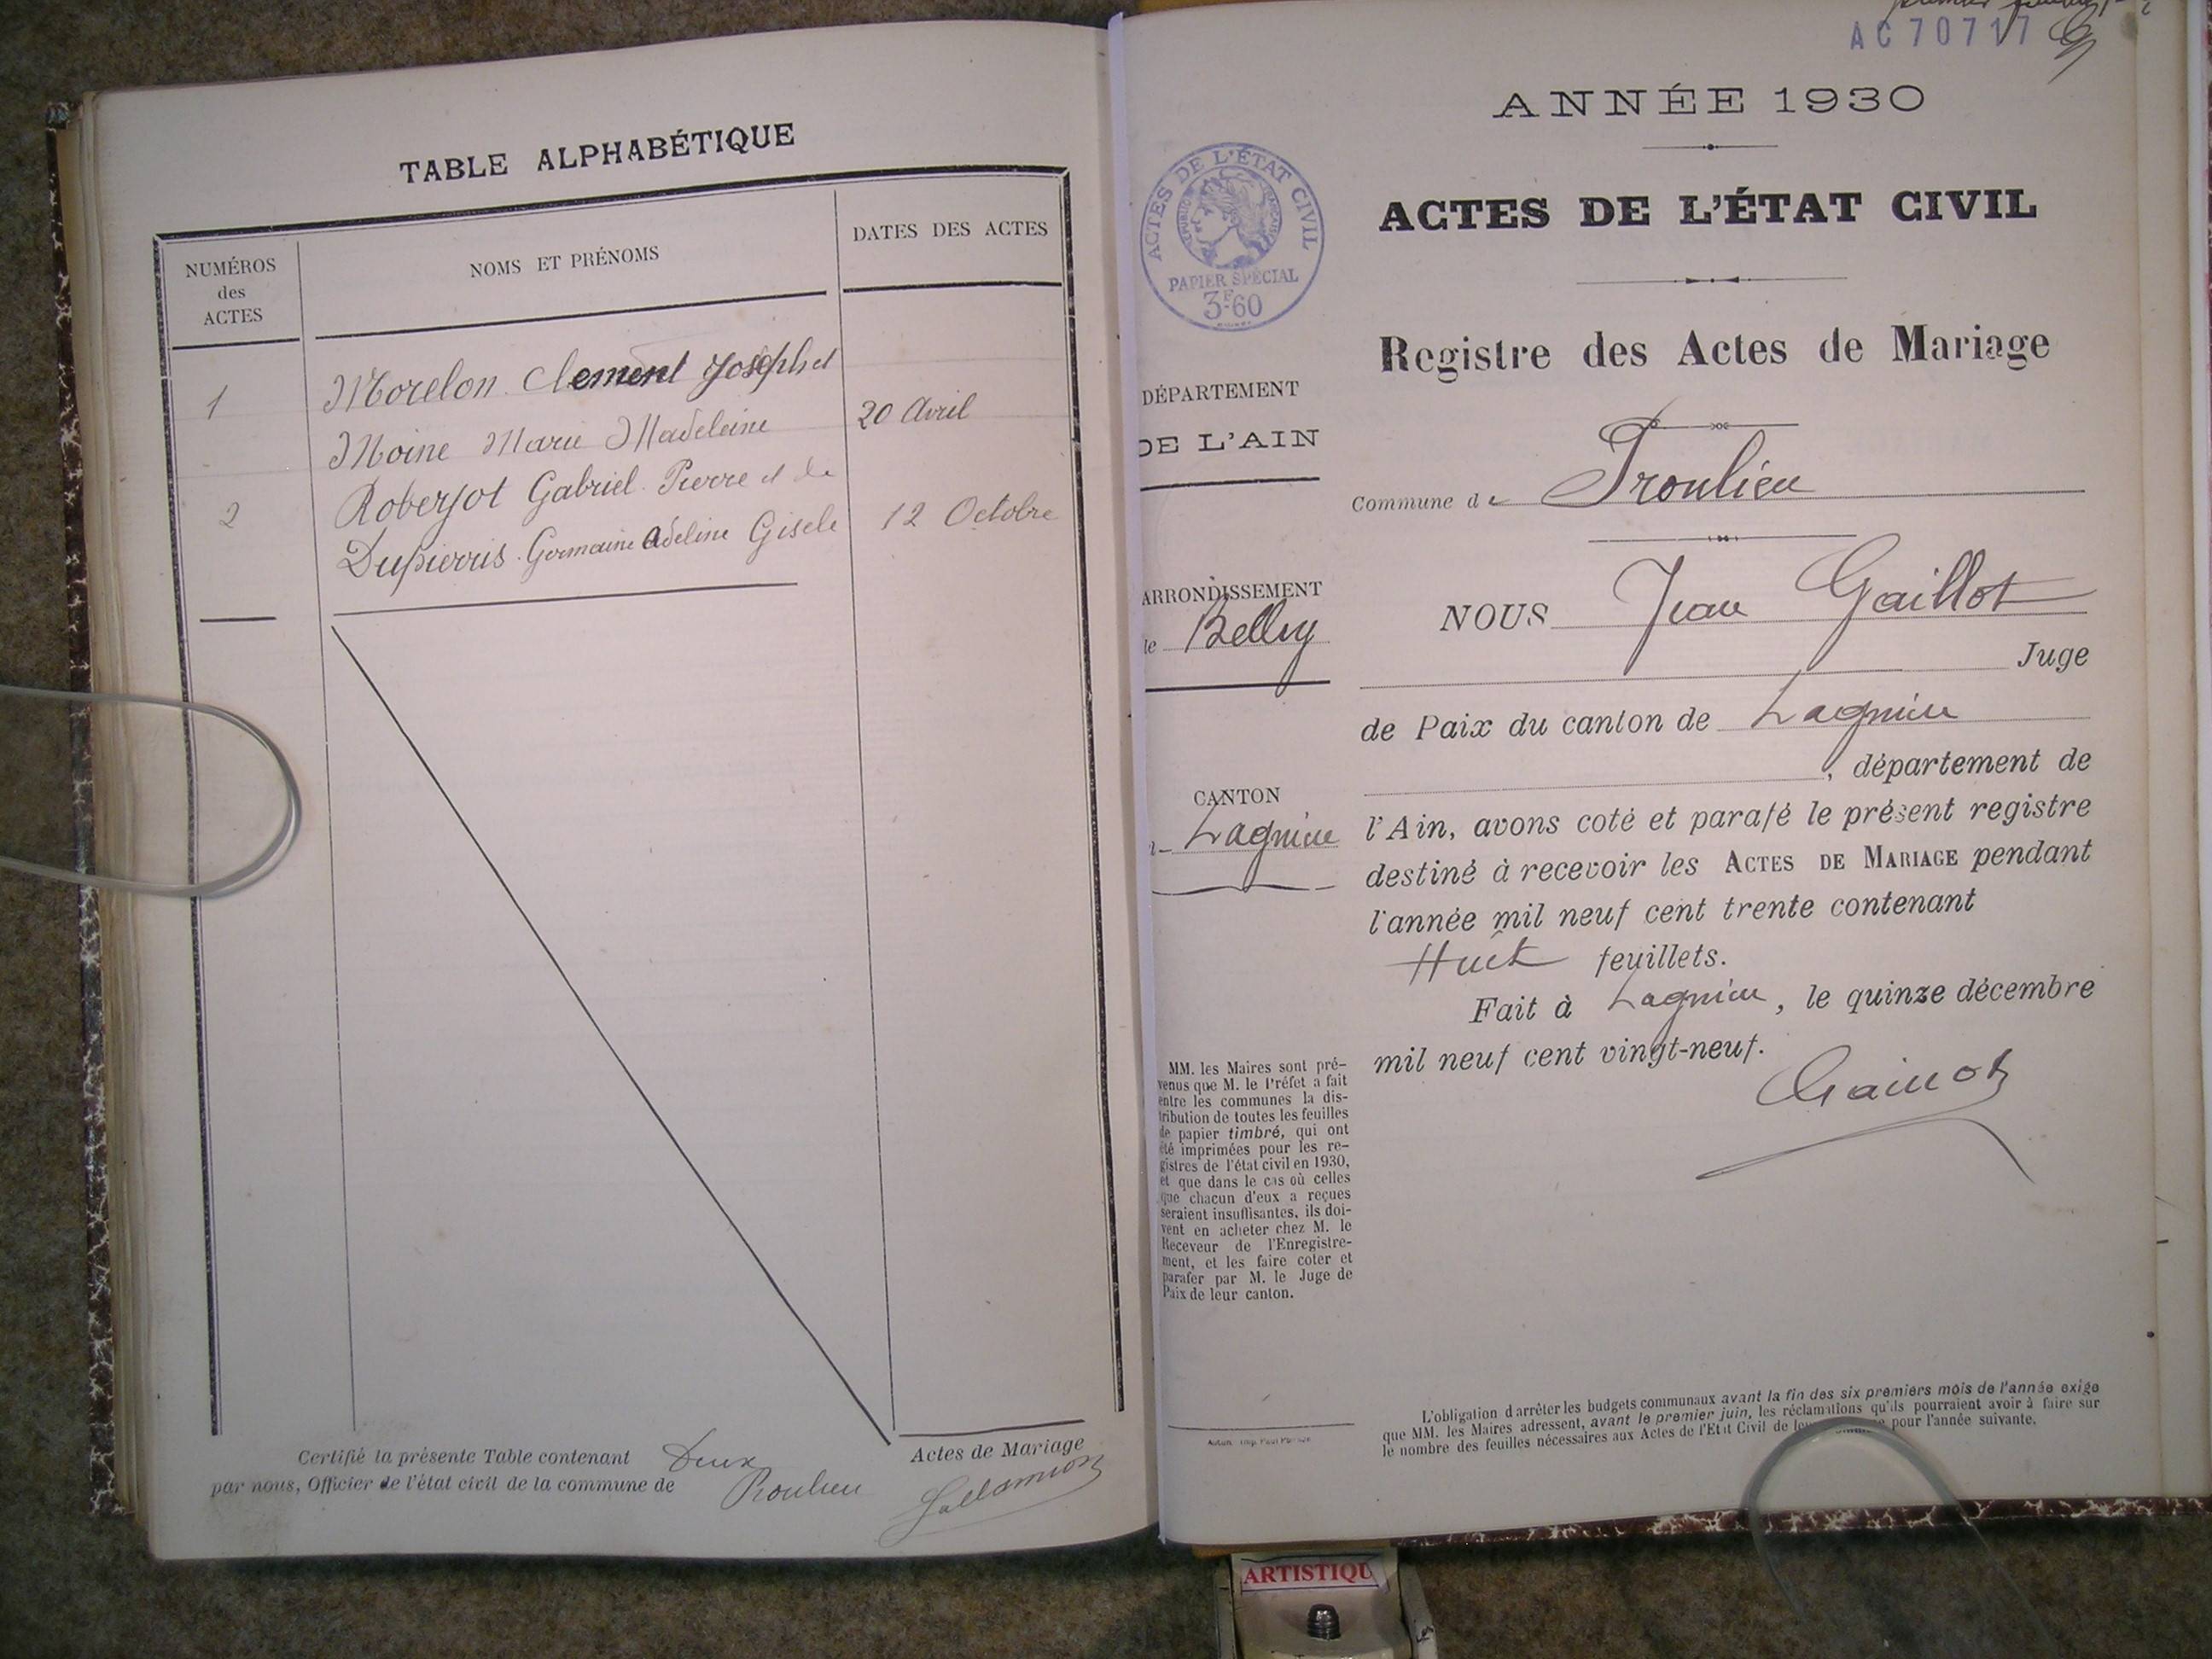 TABLE ALPHABÉTIQUE
NUMÉROS
des
ACTES
NOMS ET PRÉNOMS
DATES DES ACTES
1
Morelon Clement Joseph et
Moine Marie Madeleine
20 Avril
2
Roberjot Gabriel Pierre et de
Dupierris Germaine Adeline Gisele
12 Octobre
Certifié la présente Table contenant Deux Actes de Mariage
par nous, Officier de l'état civil de la commune de Proulieu
premier
AC70717
ANNÉE 1930
ACTES DE L'ÉTAT CIVIL
ACTES DE L'ÉTAT CIVIL
RÉPUBLIQUE FRANÇAISE
PAPIER SPÉCIAL
3F60
Registre des Actes de Mariage
DÉPARTEMENT
DE L'AIN
Commune de Proulieu
ARRONDISSEMENT
de Belley
NOUS Jean Gaillot
Juge
de Paix du canton de Lagnieu
, département de
CANTON
Lagnieu
l'Ain, avons coté et parafé le présent registre
destiné à recevoir les ACTES DE MARIAGE pendant
l'année mil neuf cent trente contenant
Huit feuillets.
Fait à Lagnieu, le quinze décembre
mil neuf cent vingt-neuf.
Gaillot
MM. les Maires sont pré-
venus que M. le Préfet a fait
entre les communes la dis-
tribution de toutes les feuilles
de papier timbré, qui ont
été imprimées pour les re-
gistres de l'état civil en 1930,
et que dans le cas où celles
que chacun d'eux a reçues
seraient insuffisantes, ils doi-
vent en acheter chez M. le
Receveur de l'Enregistre-
ment, et les faire coter et
parafer par M. le Juge de
Paix de leur canton.
Autun. Imp. Paul
L'obligation d'arrêter les budgets communaux avant la fin des six premiers mois de l'année exige
que MM. les Maires adressent, avant le premier juin, les réclamations qu'ils pourraient avoir à faire sur
le nombre des feuilles nécessaires aux Actes de l'Etat Civil de pour l'année suivante.
ARTISTIQU